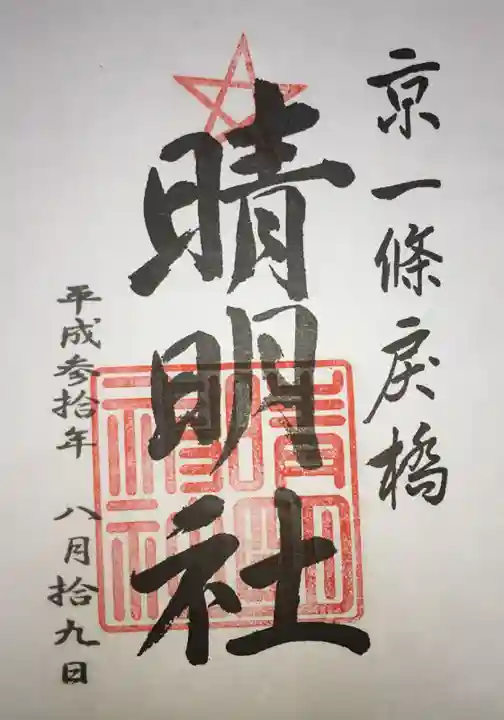 京一條戻橋
晴明社
晴明神社
平成参拾年 八月拾九日